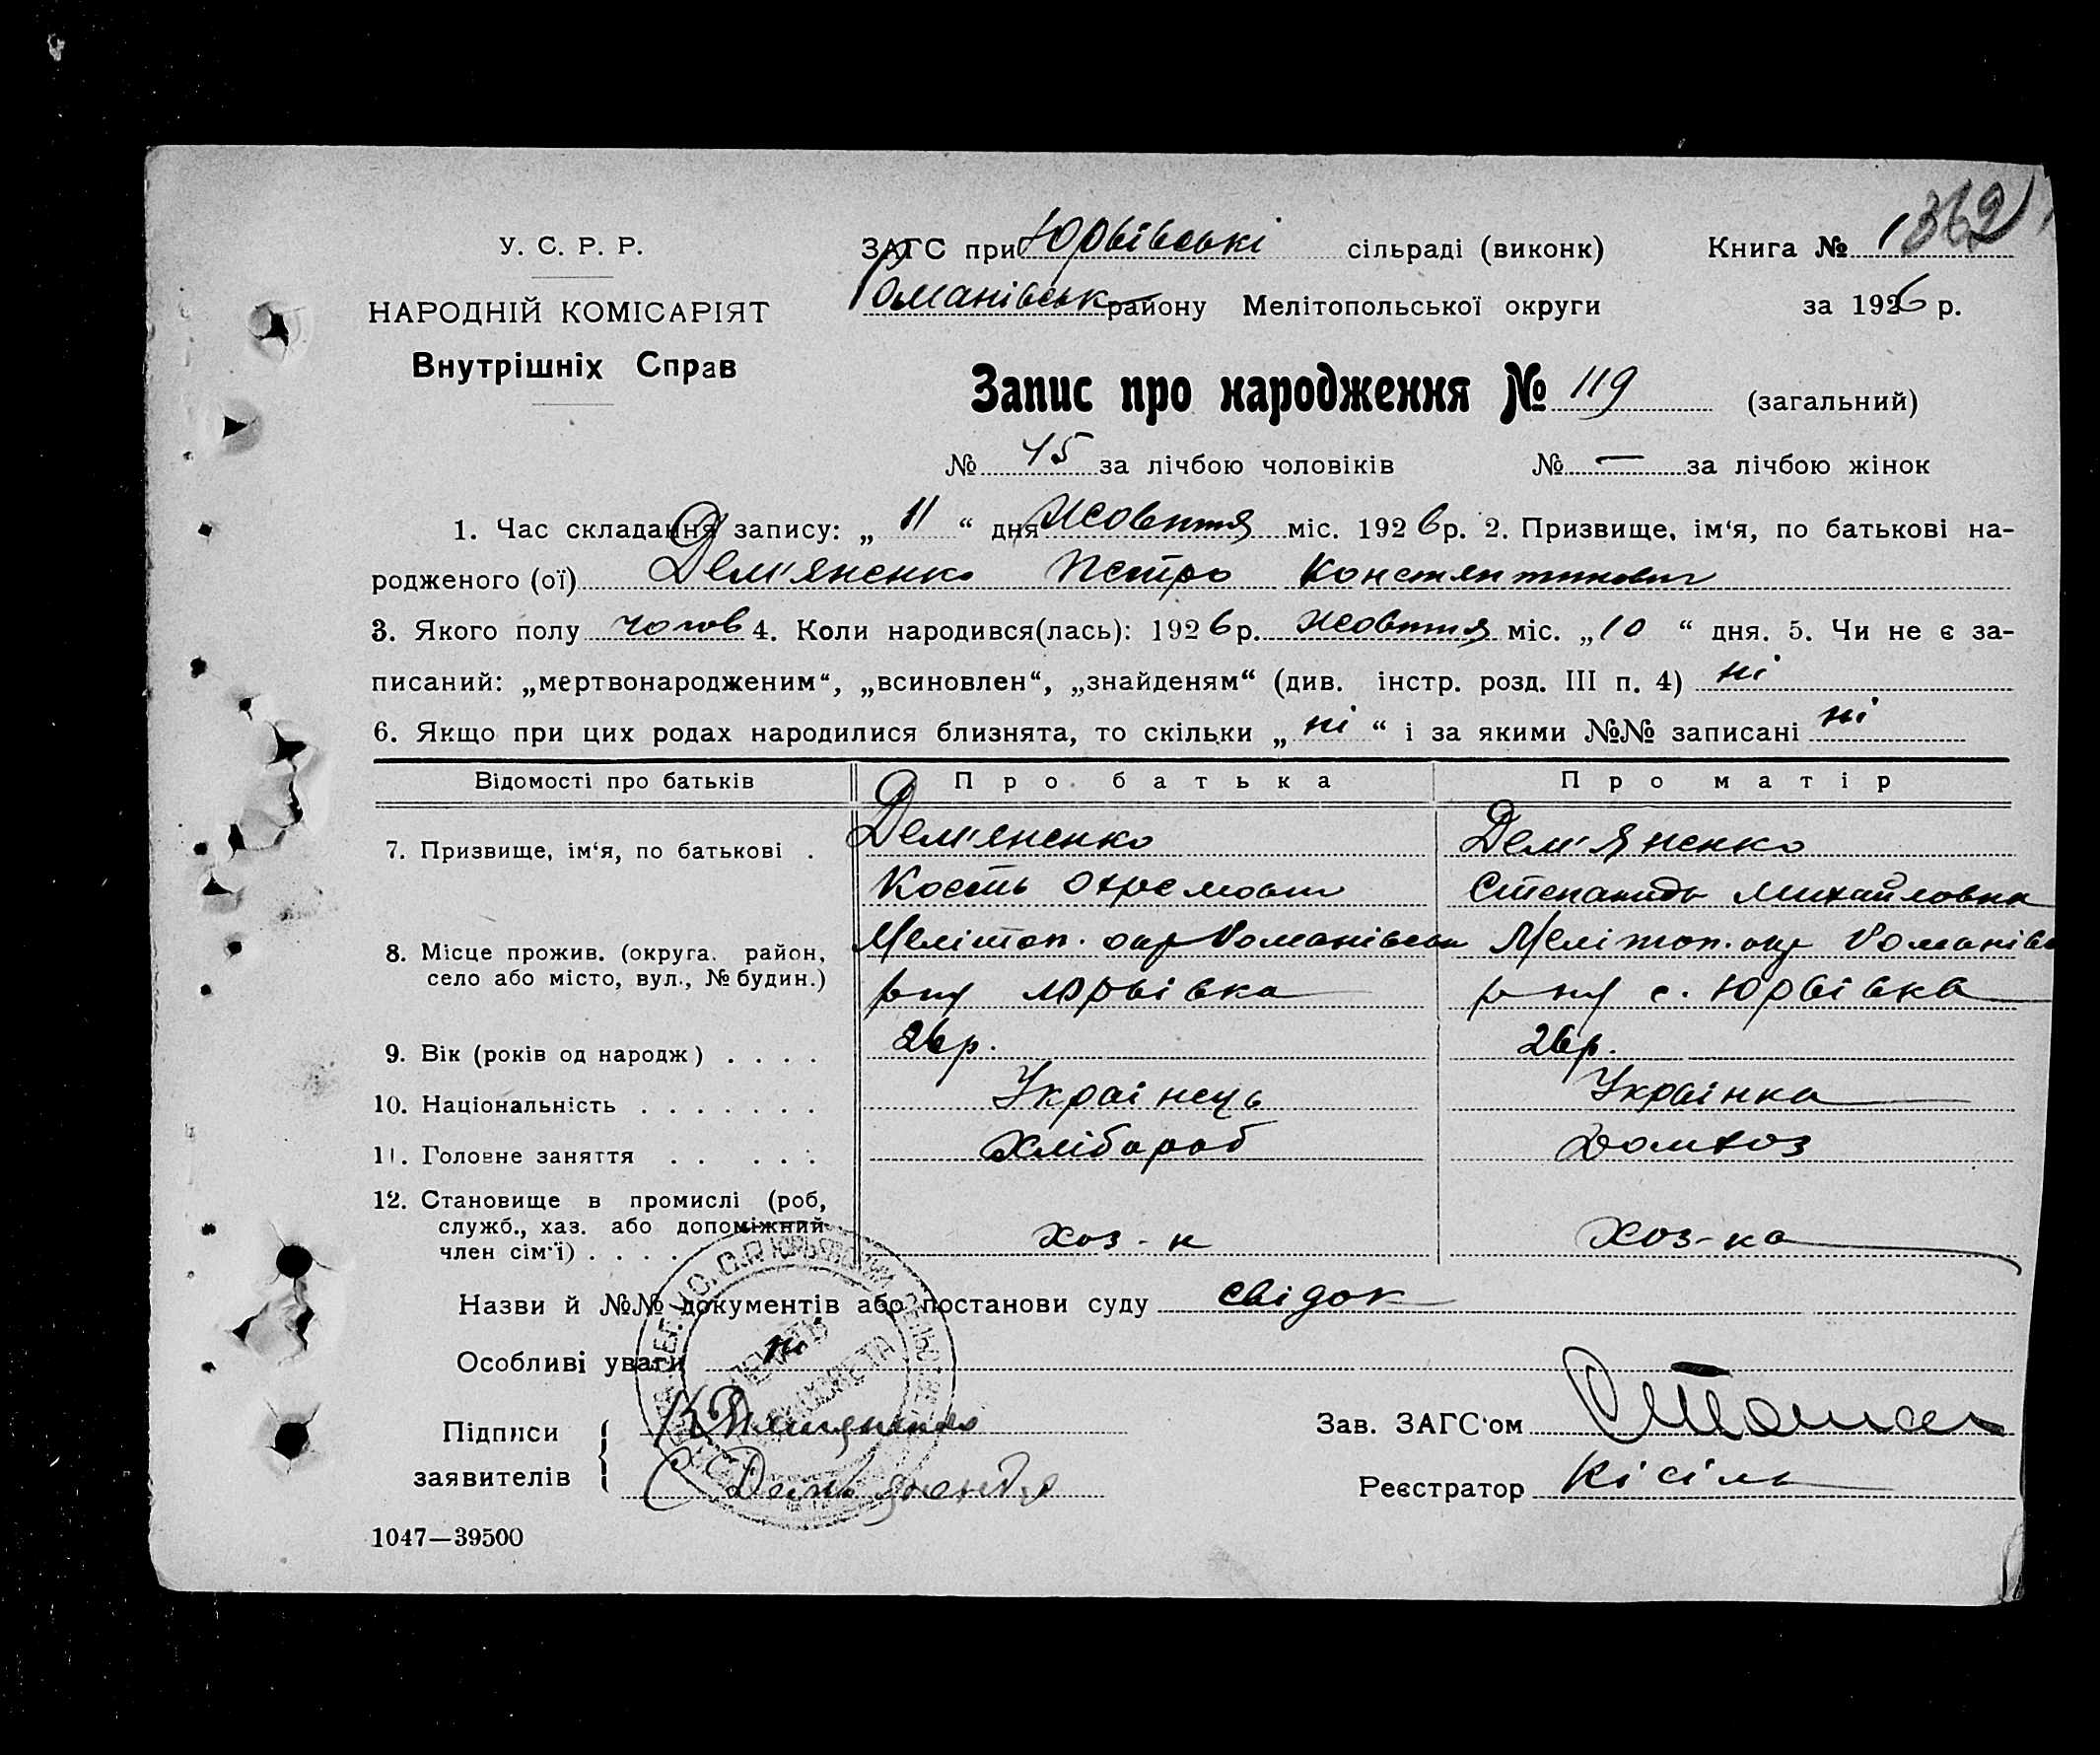 У. С. Р. Р.
НАРОДНІЙ КОМІСАРІЯТ
Внутрішніх Справ
ЗАГС при Юрвівські сільраді (виконк) Книга № 1 362
Романівськ району Мелітопольської округи за 1926 р.
Запис про народження № 119 (загальний)
№ 45 за лічбою чоловіків № — за лічбою жінок
1. Час складання запису: „ 11 “ дня Жовтня міс. 1926 р. 2. Призвище, ім‘я, по батькові на-
родженого (ої) Дем'яненко Петро Констянтинович
3. Якого полу чолов 4. Коли народився(лась): 1926 р. жовтня міс. „10 “ дня. 5. Чи не є за-
писаний: „мертвонародженим“, „всиновлен“, „знайденям“ (див. інстр. розд. III п. 4) ні
6. Якщо при цих родах народилися близнята, то скільки „ ні “ і за якими №№ записані ні
Відомості про батьків Про батька Про матір
7. Призвище, ім‘я, по батькові . Дем'яненко Дем'яненко
Кость Охремович Степанида Михайловна
8. Місце прожив. (округа. район, Мелітоп. окр Романівськ Мелітоп. окр Романівс
село або місто, вул., № будин.) Юрвівка с. Юрвівка
9. Вік (років од народж) . . . . 26 р. 26 р.
10. Національність . . . . . . . Украінець Украінка
11. Головне заняття . . . . . Хлібороб Домхоз
12. Становище в промислі (роб,
служб., хаз. або допоміжний
член сім'ї) . . . . Хоз-н Хоз-ка
Назви й №№ документів або постанови суду свідок
Особливі уваги ні
Підписи
заявителів
Зав. ЗАГС'ом
Реєстратор Кісіль
1047—39500